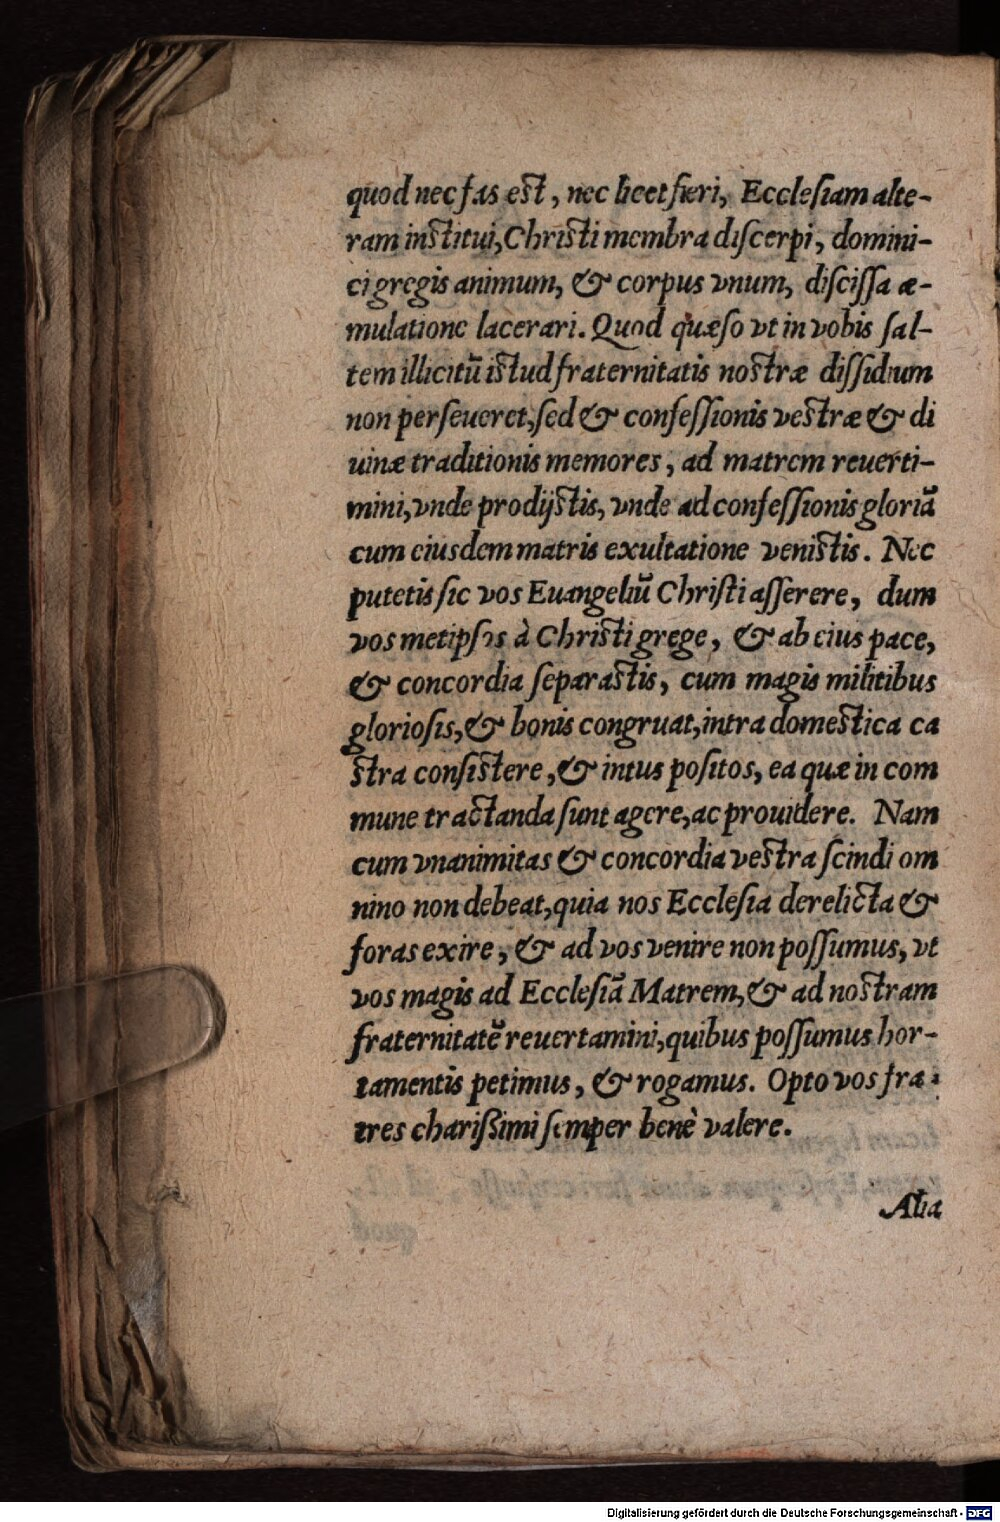 quod nec fas est, nec licet fieri, Ecclesiam alte-
ram institui, Christi membra discerpi, domini-
ci gregis animum, & corpus vnum, discissa æ-
mulatione lacerari. Quod quæso vt in vobis sal-
tem illicitũ istud fraternitatis nostræ dissidium
non perseueret, sed & confessionis vestræ & di
uinæ traditionis memores, ad matrem reuerti-
mini, vnde prodijstis, vnde ad confessionis gloriã
cum eiusdem matris exultatione venistis. Nec
putetis sic vos Euangeliũ Christi asserere, dum
vos metipsos à Christi grege, & ab eius pace,
& concordia separastis, cum magis militibus
gloriosis, & bonis congruat, intra domestica ca
stra consistere, & intus positos, ea quæ in com
mune tractanda sunt agere, ac prouidere. Nam
cum vnanimitas & concordia vestra scindi om
nino non debeat, quia nos Ecclesia derelicta &
foras exire, & ad vos venire non possumus, vt
vos magis ad Ecclesiã Matrem, & ad nostram
fraternitatẽ reuertamini, quibus possumus hor-
tamentis petimus, & rogamus. Opto vos fra-
tres charißimi semper benè valere.
Alia
Digitalisierung gefördert durch die Deutsche Forschungsgemeinschaft - DFG